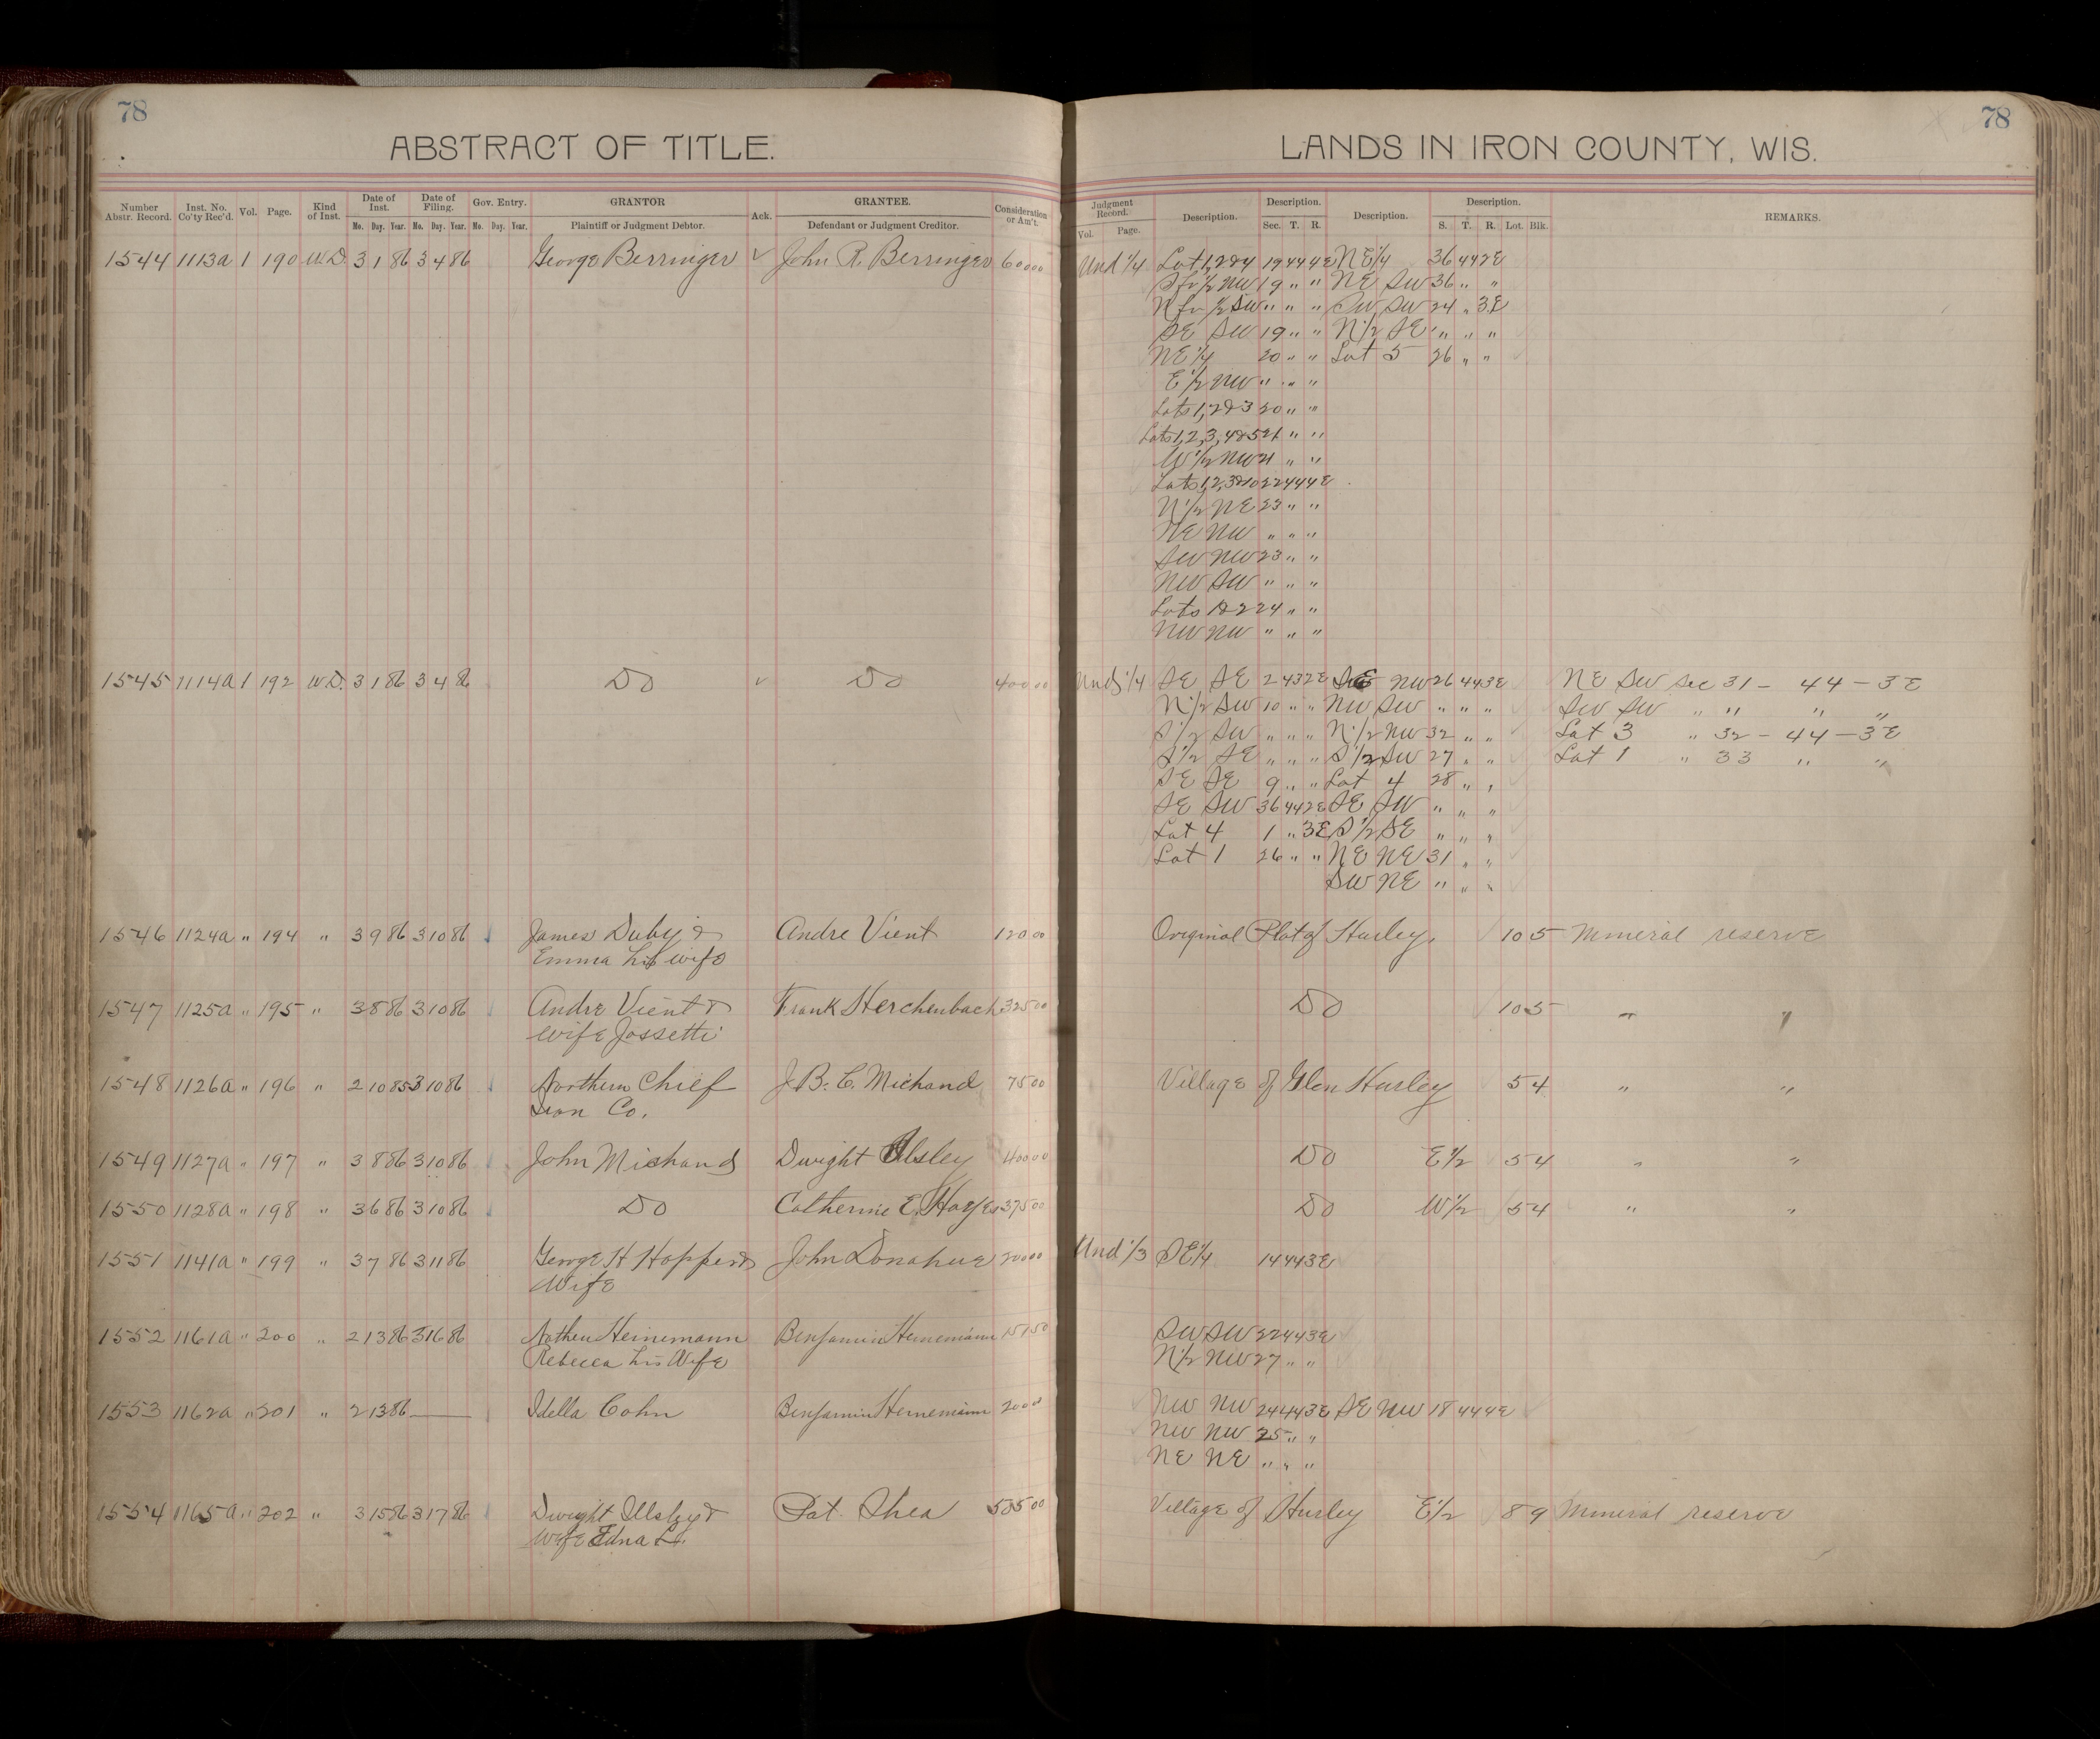 78
ABSTRACT OF TITLE.
Number Abstr. Record. Inst. No. Co'ty Rec'd. Vol. Page. Kind of Inst. Date of Inst. Date of Filing. Gov. Entry. GRANTOR Ack. GRANTEE. Consideration or Am't.
Mo. Day. Year. Mo. Day. Year. Mo. Day. Year. Plaintiff or Judgment Debtor. Defendant or Judgment Creditor.
1544 1113a 1 190 W.D. 3 1 86 3 4 86 George Berringer ✓ John R. Berringer 600 00
1545 1114a 1 192 W.D. 3 1 86 3 4 86 Do ✓ Do 400 00
1546 1124a " 194 " 3 9 86 3 10 86 James Duby & Andre Vient 120 00
Emma his wife
1547 1125a " 195 " 3 8 86 3 10 86 Andre Vient & Frank Herchenbach 325 00
wife Jossetti
1548 1126a " 196 " 2 10 85 3 10 86 Northern Chief J.B.C. Michand 75 00
Iron Co.
1549 1127a " 197 " 3 8 86 3 10 86 John Michand Dwight Ilsley 400 00
1550 1128a " 198 " 3 6 86 3 10 86 Do Catherine E. Hayes 375 00
1551 1141a " 199 " 3 7 86 3 11 86 George H Hopper & John Donahue 200 00
Wife
1552 1161a " 200 " 2 13 86 3 16 86 Nathen Heinemann Benjamin Heinemann 151 50
Rebecca his Wife
1553 1162a " 201 " 2 13 86 Idella Cohn Benjamin Heinemann 20 00
1554 1165a " 202 " 3 15 86 3 17 86 Dwight Illsley & Pat. Shea 505 00
Wife Edna L.
78
LANDS IN IRON COUNTY, WIS.
Judgment Record. Description. Description. Description. Description. REMARKS.
Vol. Page. Sec. T. R. S. T. R. Lot. Blk.
Und 1/4 Lot 1, 2 & 4 19 44 4E NE 1/4 36 44 2E
S fr 1/2 NW 19 " " NE SW 36 " "
N fr 1/2 SW " " " SW SW 24 " 3E
SE SW 19 " " N 1/2 SE " " "
NE 1/4 20 " " Lot 5 26 " "
E 1/2 NW " " "
Lots 1, 2 & 3 20 " "
Lots 1, 2, 3, 4 & 5 21 " "
W 1/2 NW 21 " "
Lots 1, 2, 3 & 10 22 44 4E
N 1/2 NE 23 " "
NE NW " " "
SW NW 23 " "
NW SW " " "
Lots 1 & 2 24 " "
NW NW " " "
Und 1/4 SE SE 2 43 2E NW 26 44 3E NE SW Sec 31 - 44 - 3E
N 1/2 SW 10 " " NW SW " " " SW SW " " " "
S 1/2 SW " " " N 1/2 NW 32 " " Lot 3 " 32 - 44 - 3E
S 1/2 SE " " " S 1/2 SW 27 " " Lot 1 " 33 " "
SE SE 9 " " Lot 4 28 " "
SE SW 36 44 2E SE SW " " "
Lot 4 1 " 3E S 1/2 SE " " "
Lot 1 26 " " NE NE 31 " "
SW NE " " "
Original Plat of Hurley. 10 5 Mineral reserve
Do 10 5 " "
Village of Glen Hurley 5 4 " "
Do E 1/2 5 4 " "
Do W 1/2 5 4 " "
Und 1/3 SE 1/4 14 44 3E
SW SW 22 44 3E
N 1/2 NW 27 " "
NW NW 24 44 3E SE NW 18 44 4E
NW NW 25 " "
NE NE " " "
Village of Hurley E 1/2 8 9 Mineral reserve